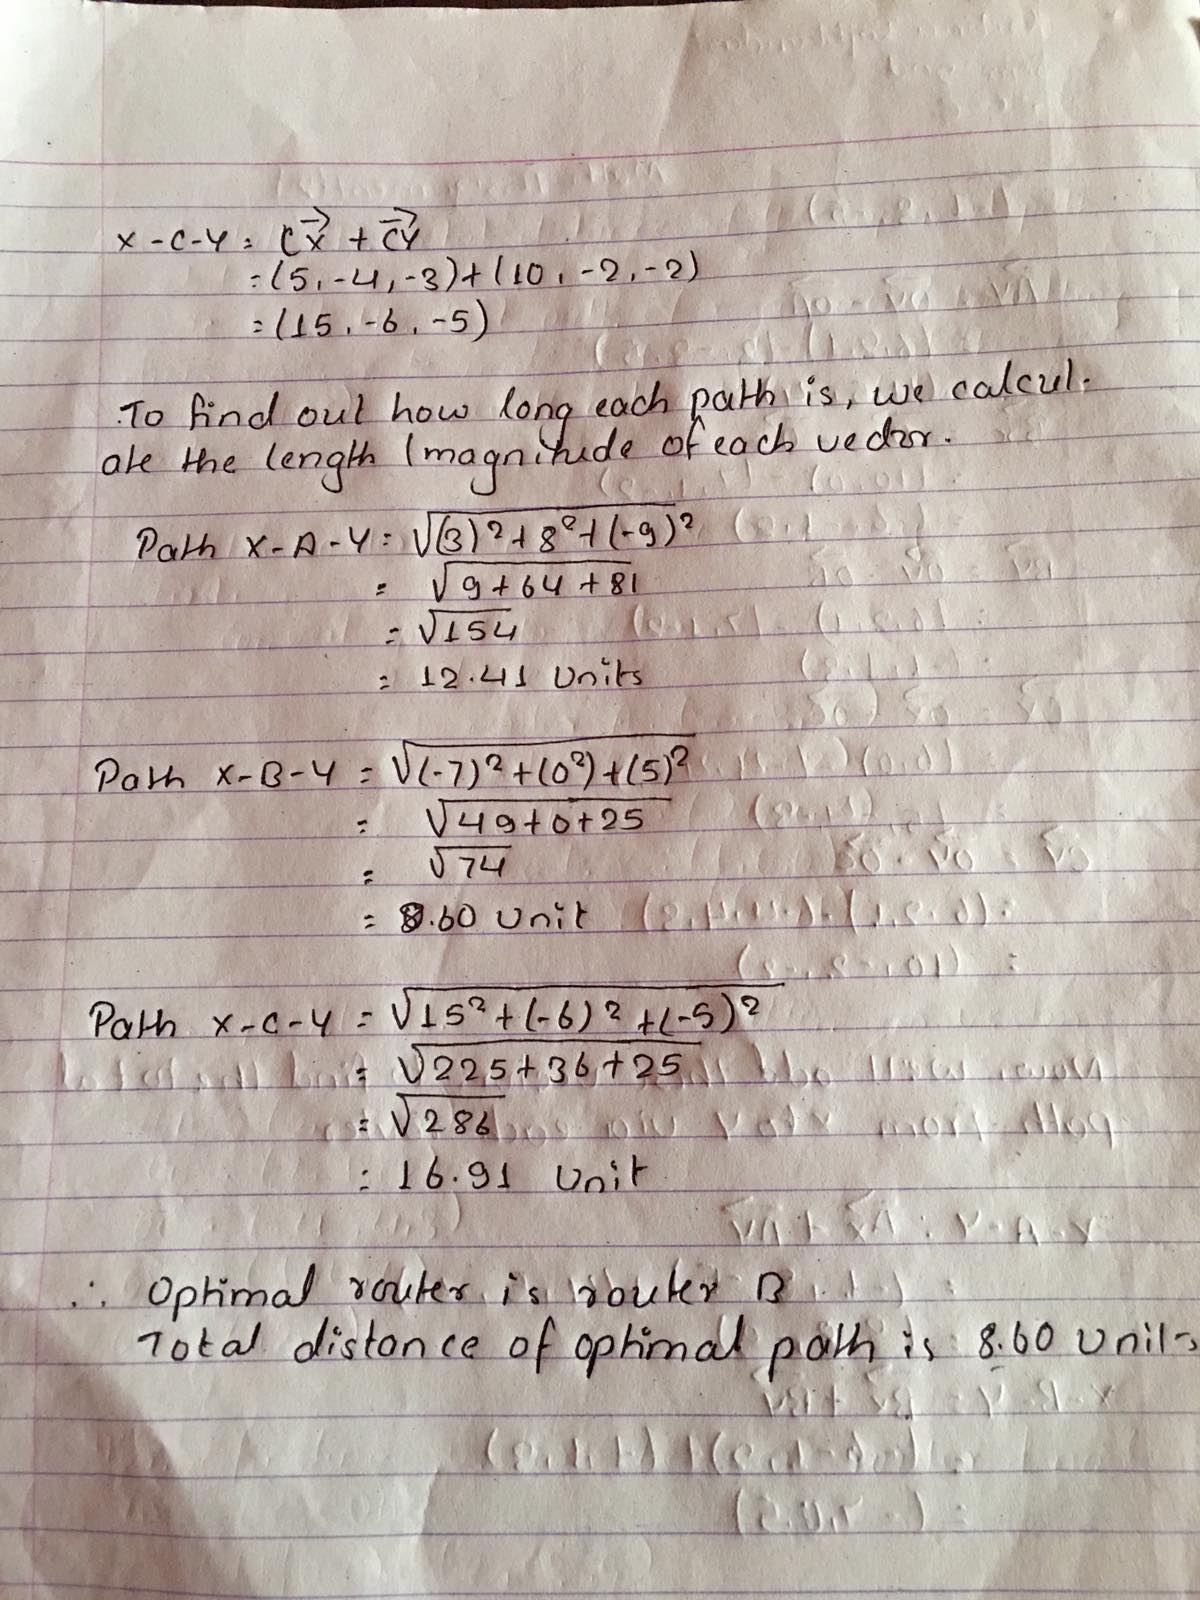 X-C-Y = CX + CY
= (5, -4, -3) + (10, -2, -2)
= (15, -6, -5)
To find out how long each path is, we calcul-
ate the length (magnitude of each vector.
Path X-A-Y = √(3)² + 8² + (-9)²
= √9 + 64 + 81
= √154
= 12.41 Units
Path X-B-Y = √(-7)² + (0²) + (5)²
= √49 + 0 + 25
= √74
= 8.60 Unit
Path X-C-Y = √15² + (-6)² + (-5)²
= √225 + 36 + 25
= √286
= 16.91 Unit
∴ Optimal router is router B
Total distance of optimal path is 8.60 Units